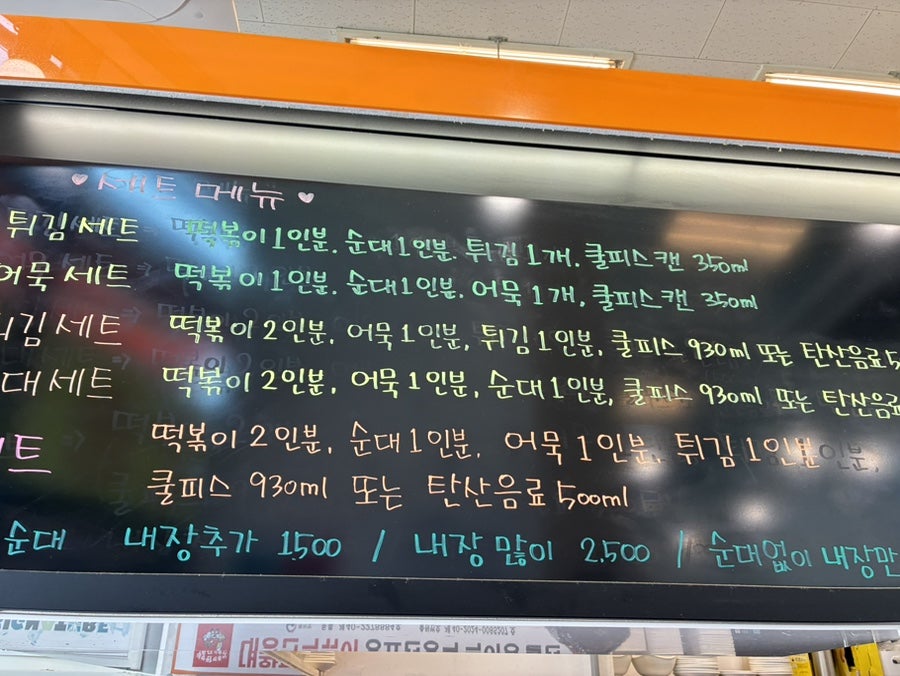 ♥ 세트 메뉴 ♥
튀김세트 떡볶이1인분. 순대1인분. 튀김1개. 쿨피스캔 350ml
어묵세트 떡볶이1인분. 순대1인분, 어묵1개, 쿨피스캔 350ml
튀김세트 떡볶이2인분, 어묵1인분, 튀김1인분, 쿨피스 930ml 또는 탄산음료5
대세트 떡볶이2인분, 어묵1인분, 순대1인분, 쿨피스 930ml 또는 탄산음료
세트 떡볶이2인분, 순대1인분, 어묵1인분, 튀김1인분
쿨피스 930ml 또는 탄산음료 500ml
순대 내장추가 1500 / 내장많이 2,500 / 순대없이 내장만